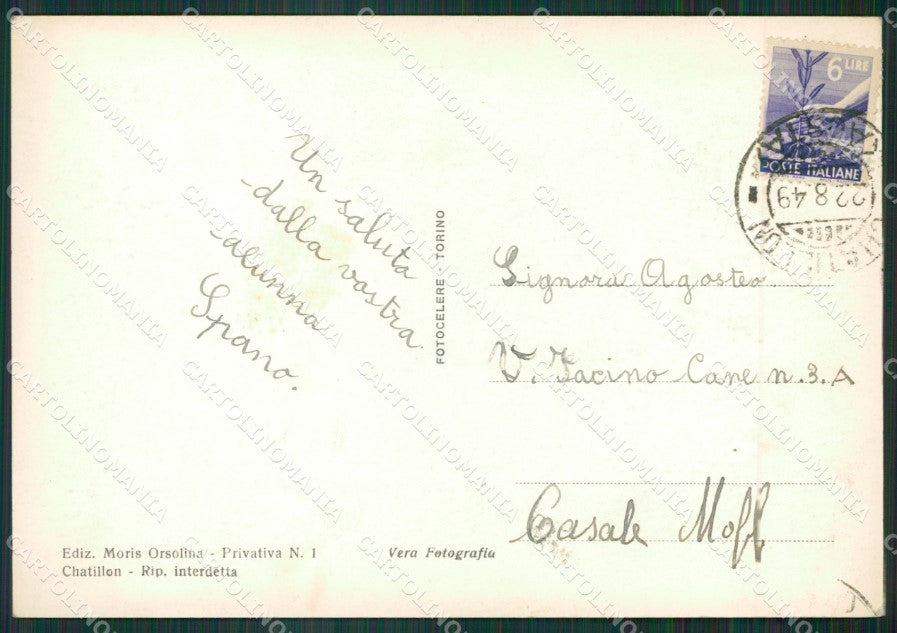 Un saluto
dalla vostra
alunna
Spano.
FOTOCELERE TORINO
6 LIRE
POSTE ITALIANE
22.8.49
Signora Agosteo
V. Facino Cane n.3.A
Casale Monf
Ediz. Moris Orsolina - Privativa N. 1
Chatillon - Rip. interdetta
Vera Fotografia
CARTOLINOMANIA